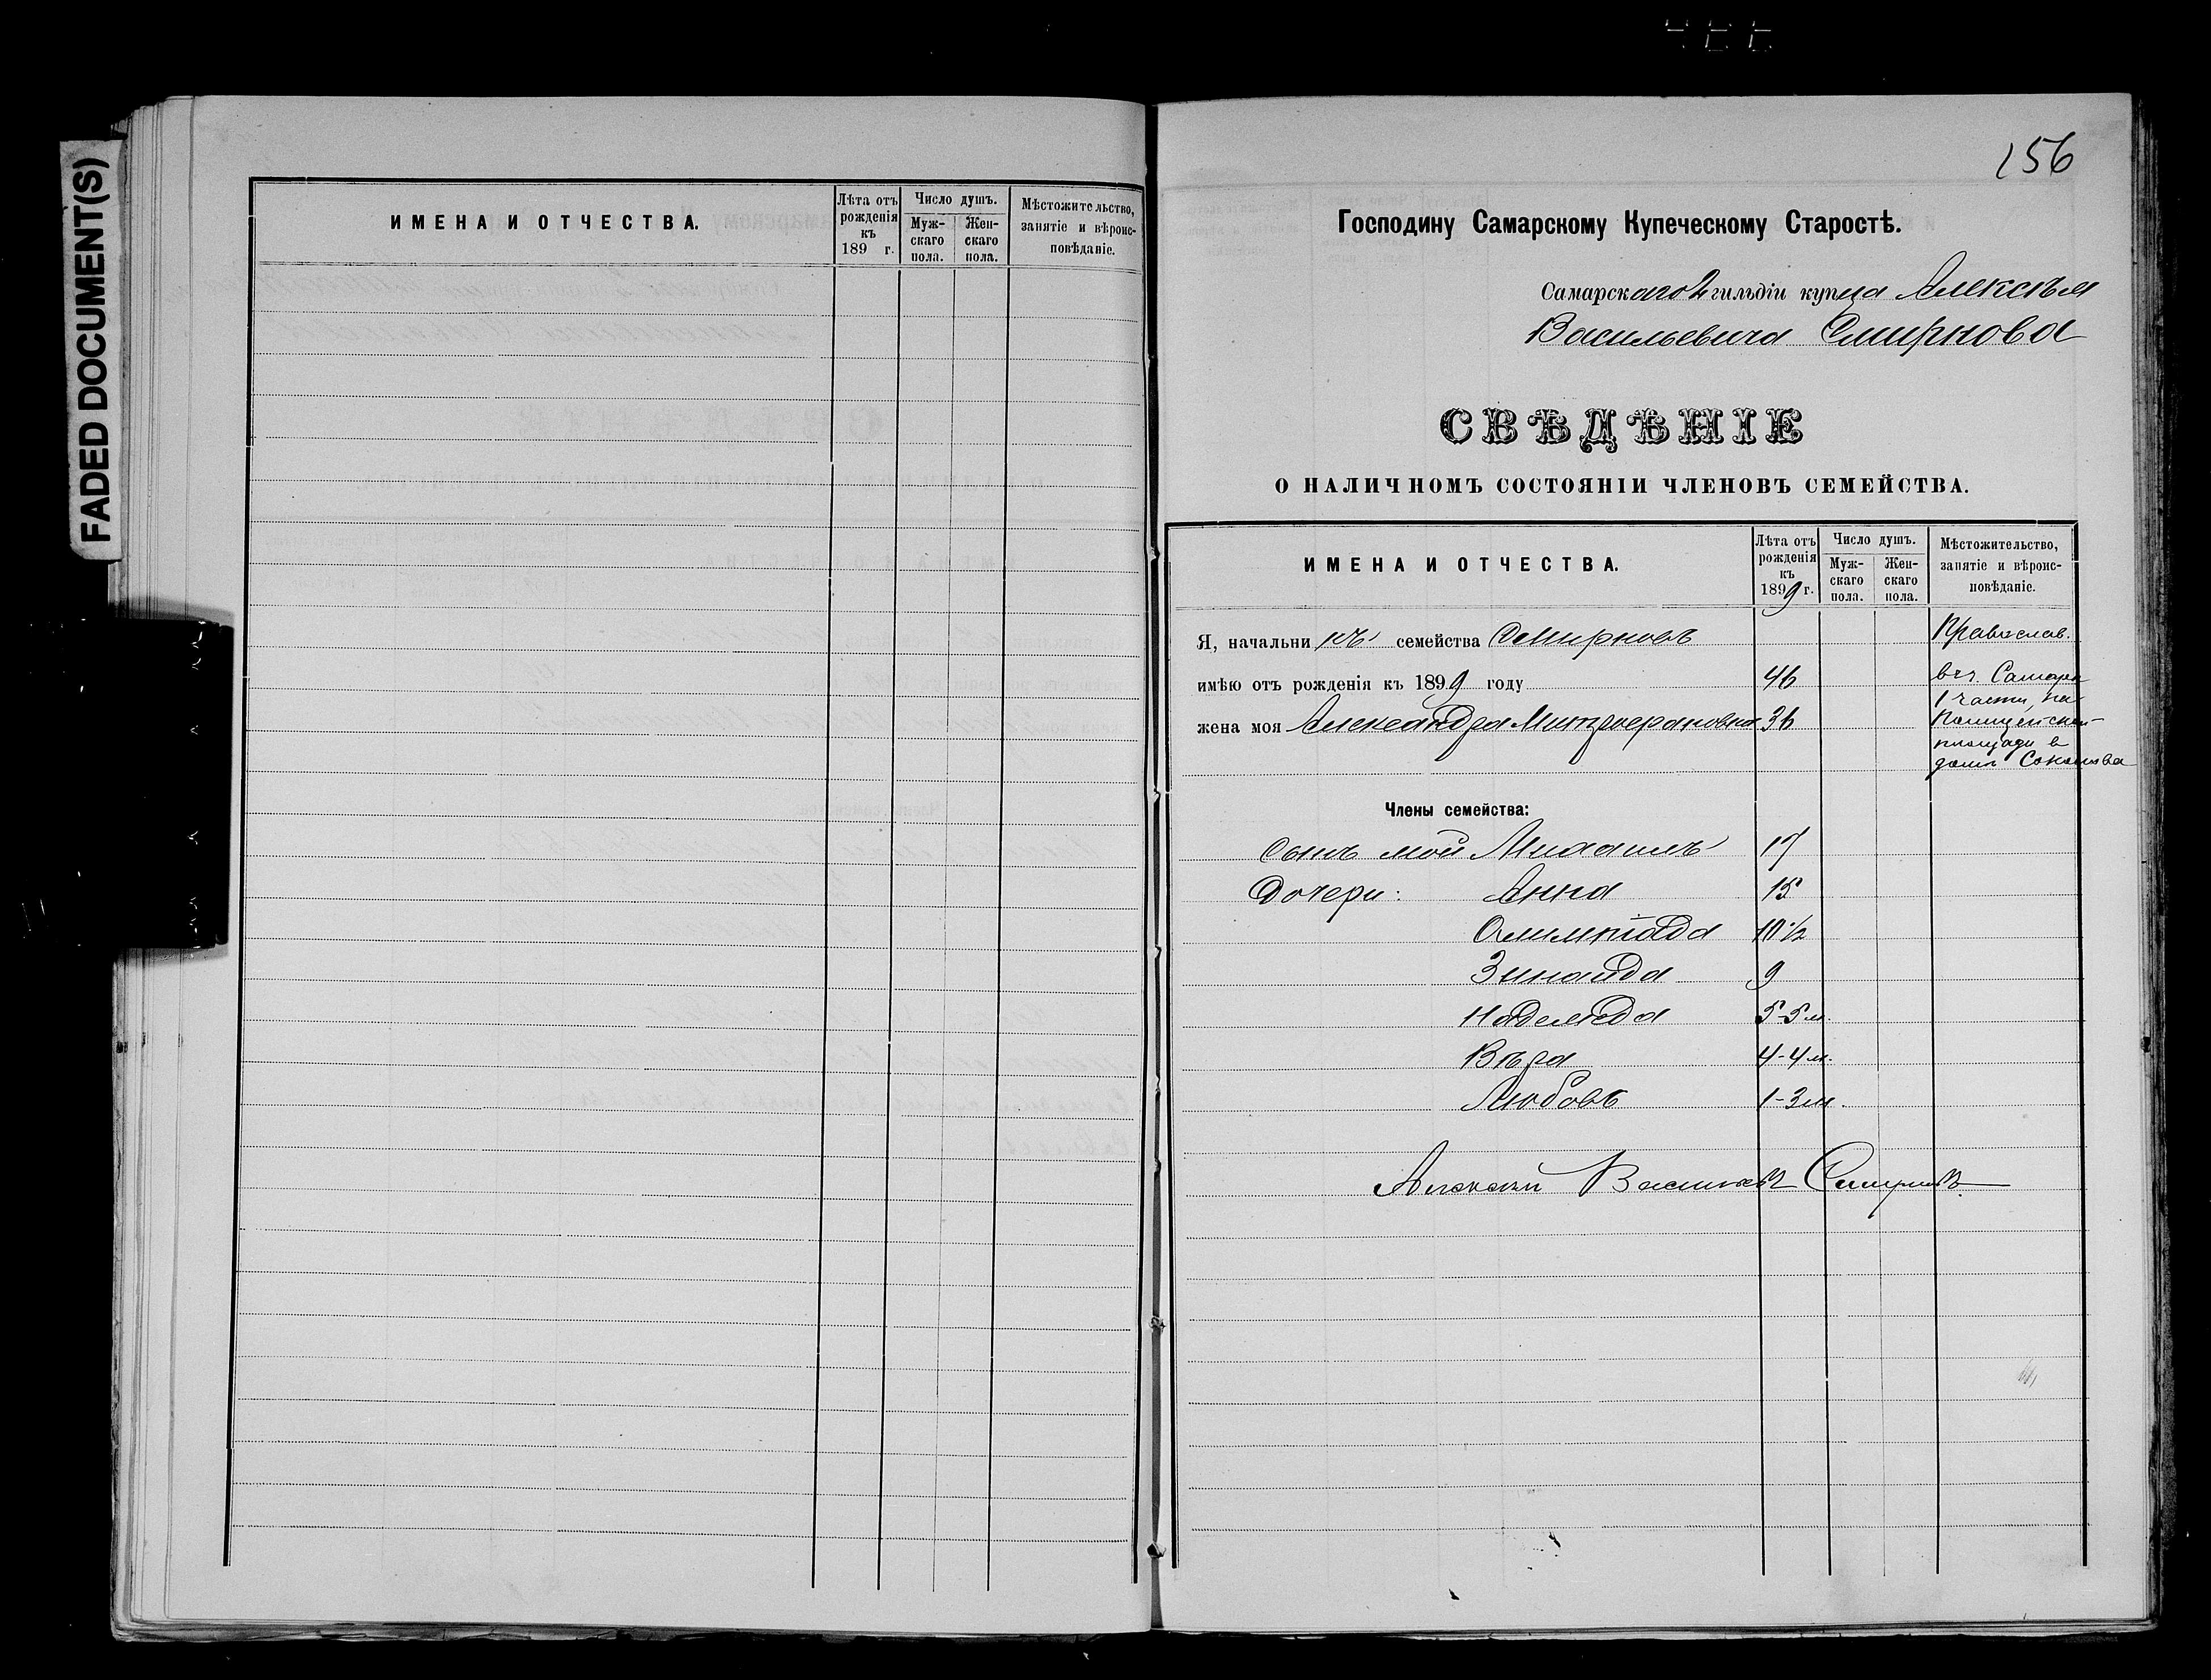 FADED DOCUMENT(S)
ИМЕНА И ОТЧЕСТВА.
Лѣта отъ
рожденія
къ
189 г.
Число душъ.
Муж-
скаго
пола.
Жен-
скаго
пола.
Мѣстожительство,
занятіе и вѣроис-
повѣданіе.
156
Господину Самарскому Купеческому Старостѣ.
Самарскаго 2 гильдіи купца Алексѣя
Васильевича Смирнова
СВѢДѢНІЕ
О НАЛИЧНОМЪ СОСТОЯНІИ ЧЛЕНОВЪ СЕМЕЙСТВА.
ИМЕНА И ОТЧЕСТВА.
Лѣта отъ
рожденія
къ
1899 г.
Число душъ.
Муж-
скаго
пола.
Жен-
скаго
пола.
Мѣстожительство,
занятіе и вѣроис-
повѣданіе.
Я, начальникъ семейства Смирновъ
Православ.
имѣю отъ рожденія къ 1899 году 46
в г. Самарѣ
1 части, на
жена моя Александра Митрофановна 36
Полицейской
площади в
домѣ Соколова
Члены семейства:
Сынъ мой Михаилъ 17
Дочери: Анна 15
Олимпіада 10 1/2
Зинаида 9
Надежда 5-5 м.
Вѣра 4-4 м.
Любовь 1-3 м.
Алексей Васильевъ Смирновъ